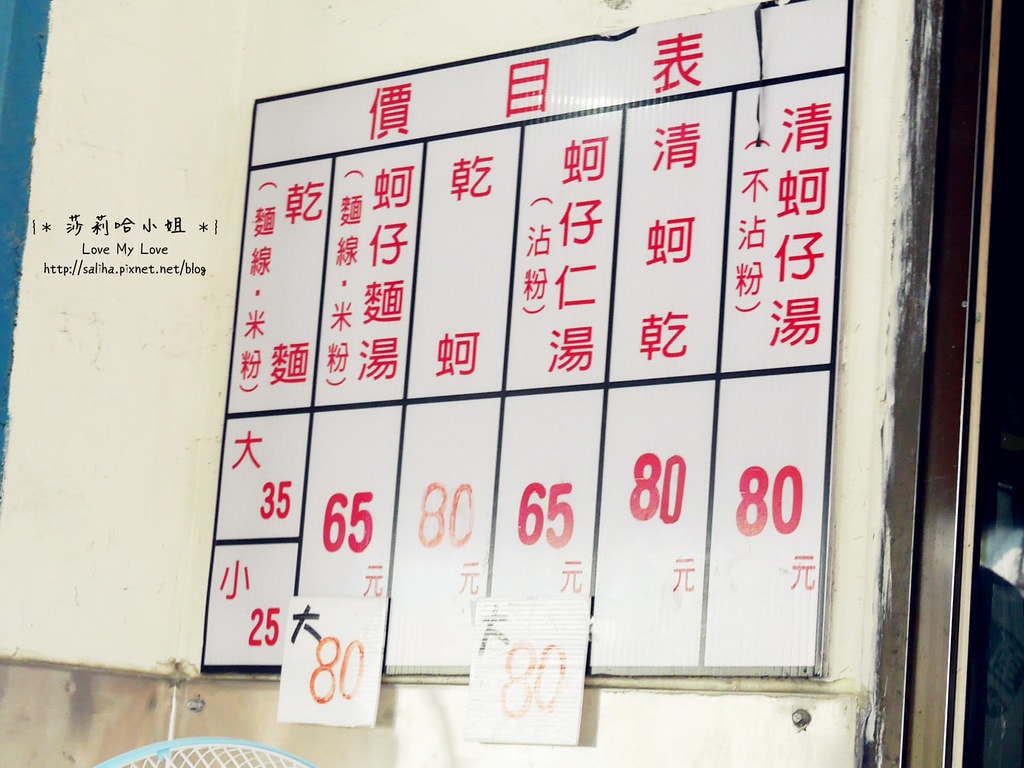 價目表
清蚵仔湯
（不沾粉）
80
元
清蚵乾
80
元
蚵仔仁湯
（沾粉）
65
元
大
80
乾蚵
80
元
蚵仔麵湯
（麵線·米粉）
65
元
大
80
乾麵
（麵線·米粉）
大
35
小
25
{* 莎莉哈小姐 *}
Love My Love
http://saliha.pixnet.net/blog